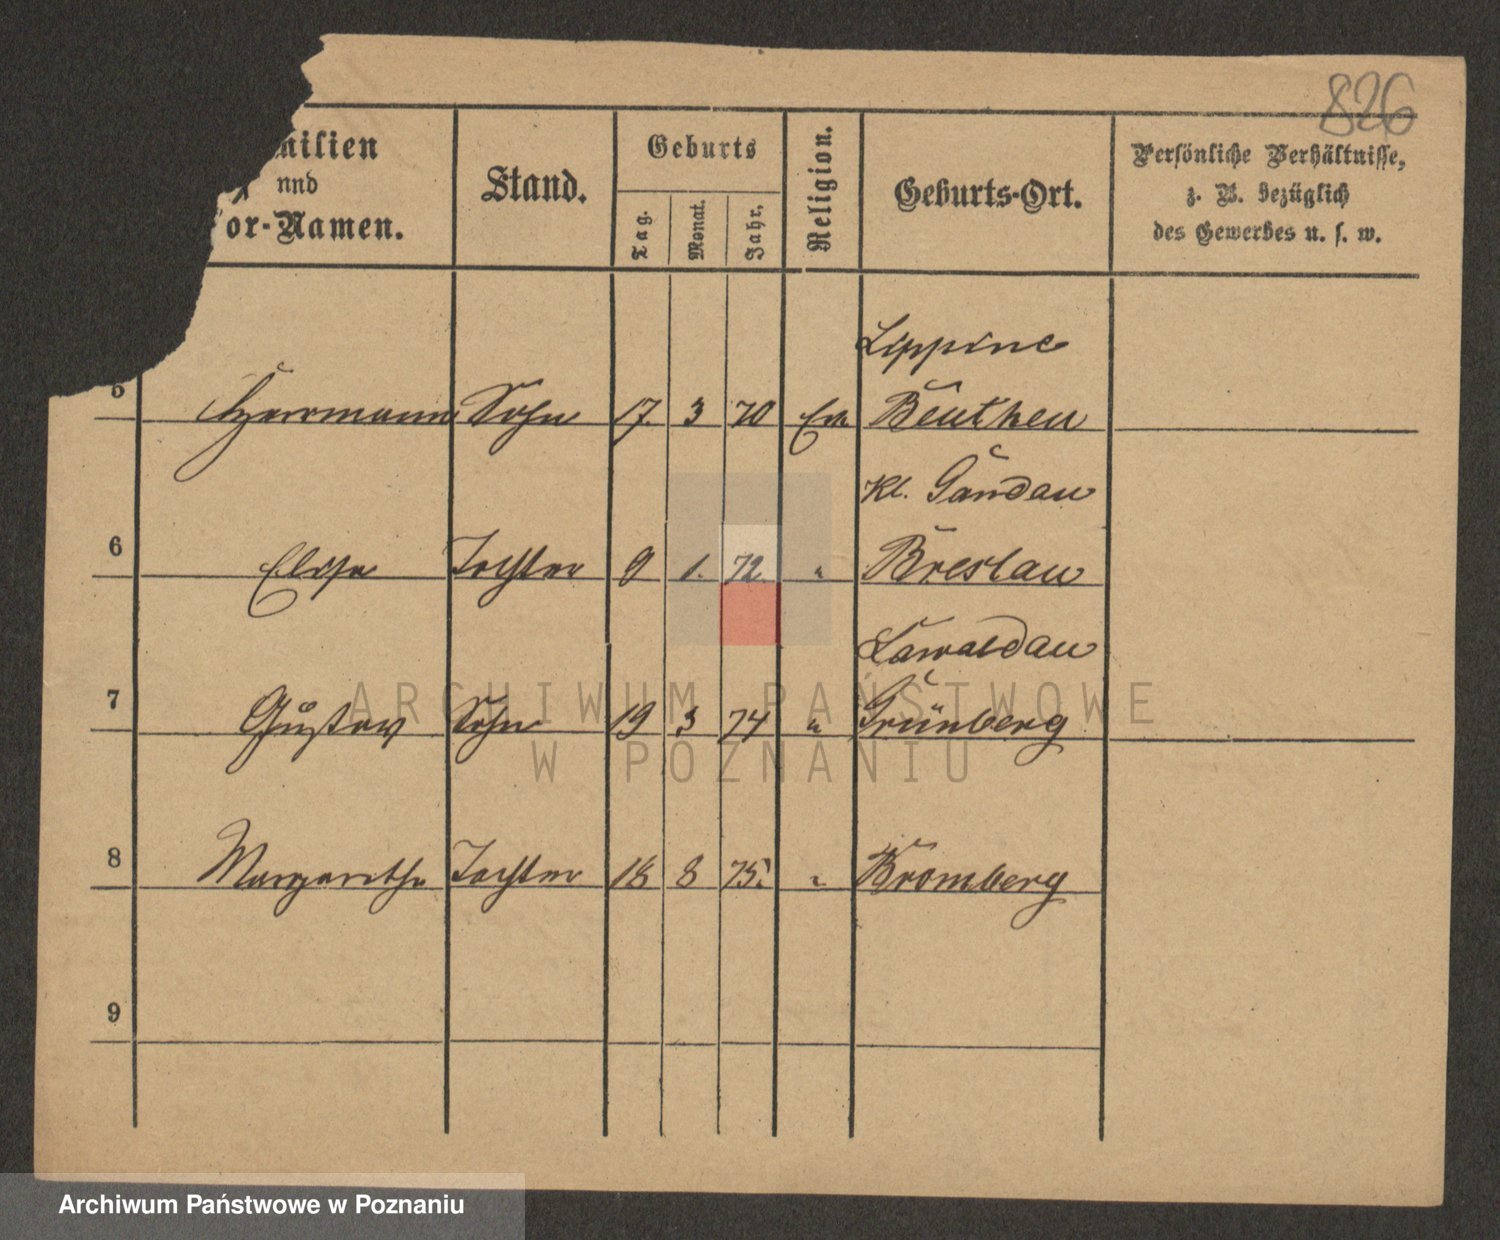 826
milien
und
or-Namen.
Stand.
Geburts
Tag.
Monat.
Jahr.
Religion.
Geburts-Ort.
Persönliche Verhältnisse,
z. B. bezüglich
des Gewerbes u. s. w.
Lippine
5 Herrmann Sohn 17. 3 70 Ev. Beuthen
Kl. Gandau
6 Elise Tochter 9 1. 72 " Breslau
Lawaldau
7 Gustav Sohn 19 3 74 " Grünberg
8 Margarethe Tochter 18 8 75. " Bromberg
9
ARCHIWUM PAŃSTWOWE
W POZNANIU
Archiwum Państwowe w Poznaniu